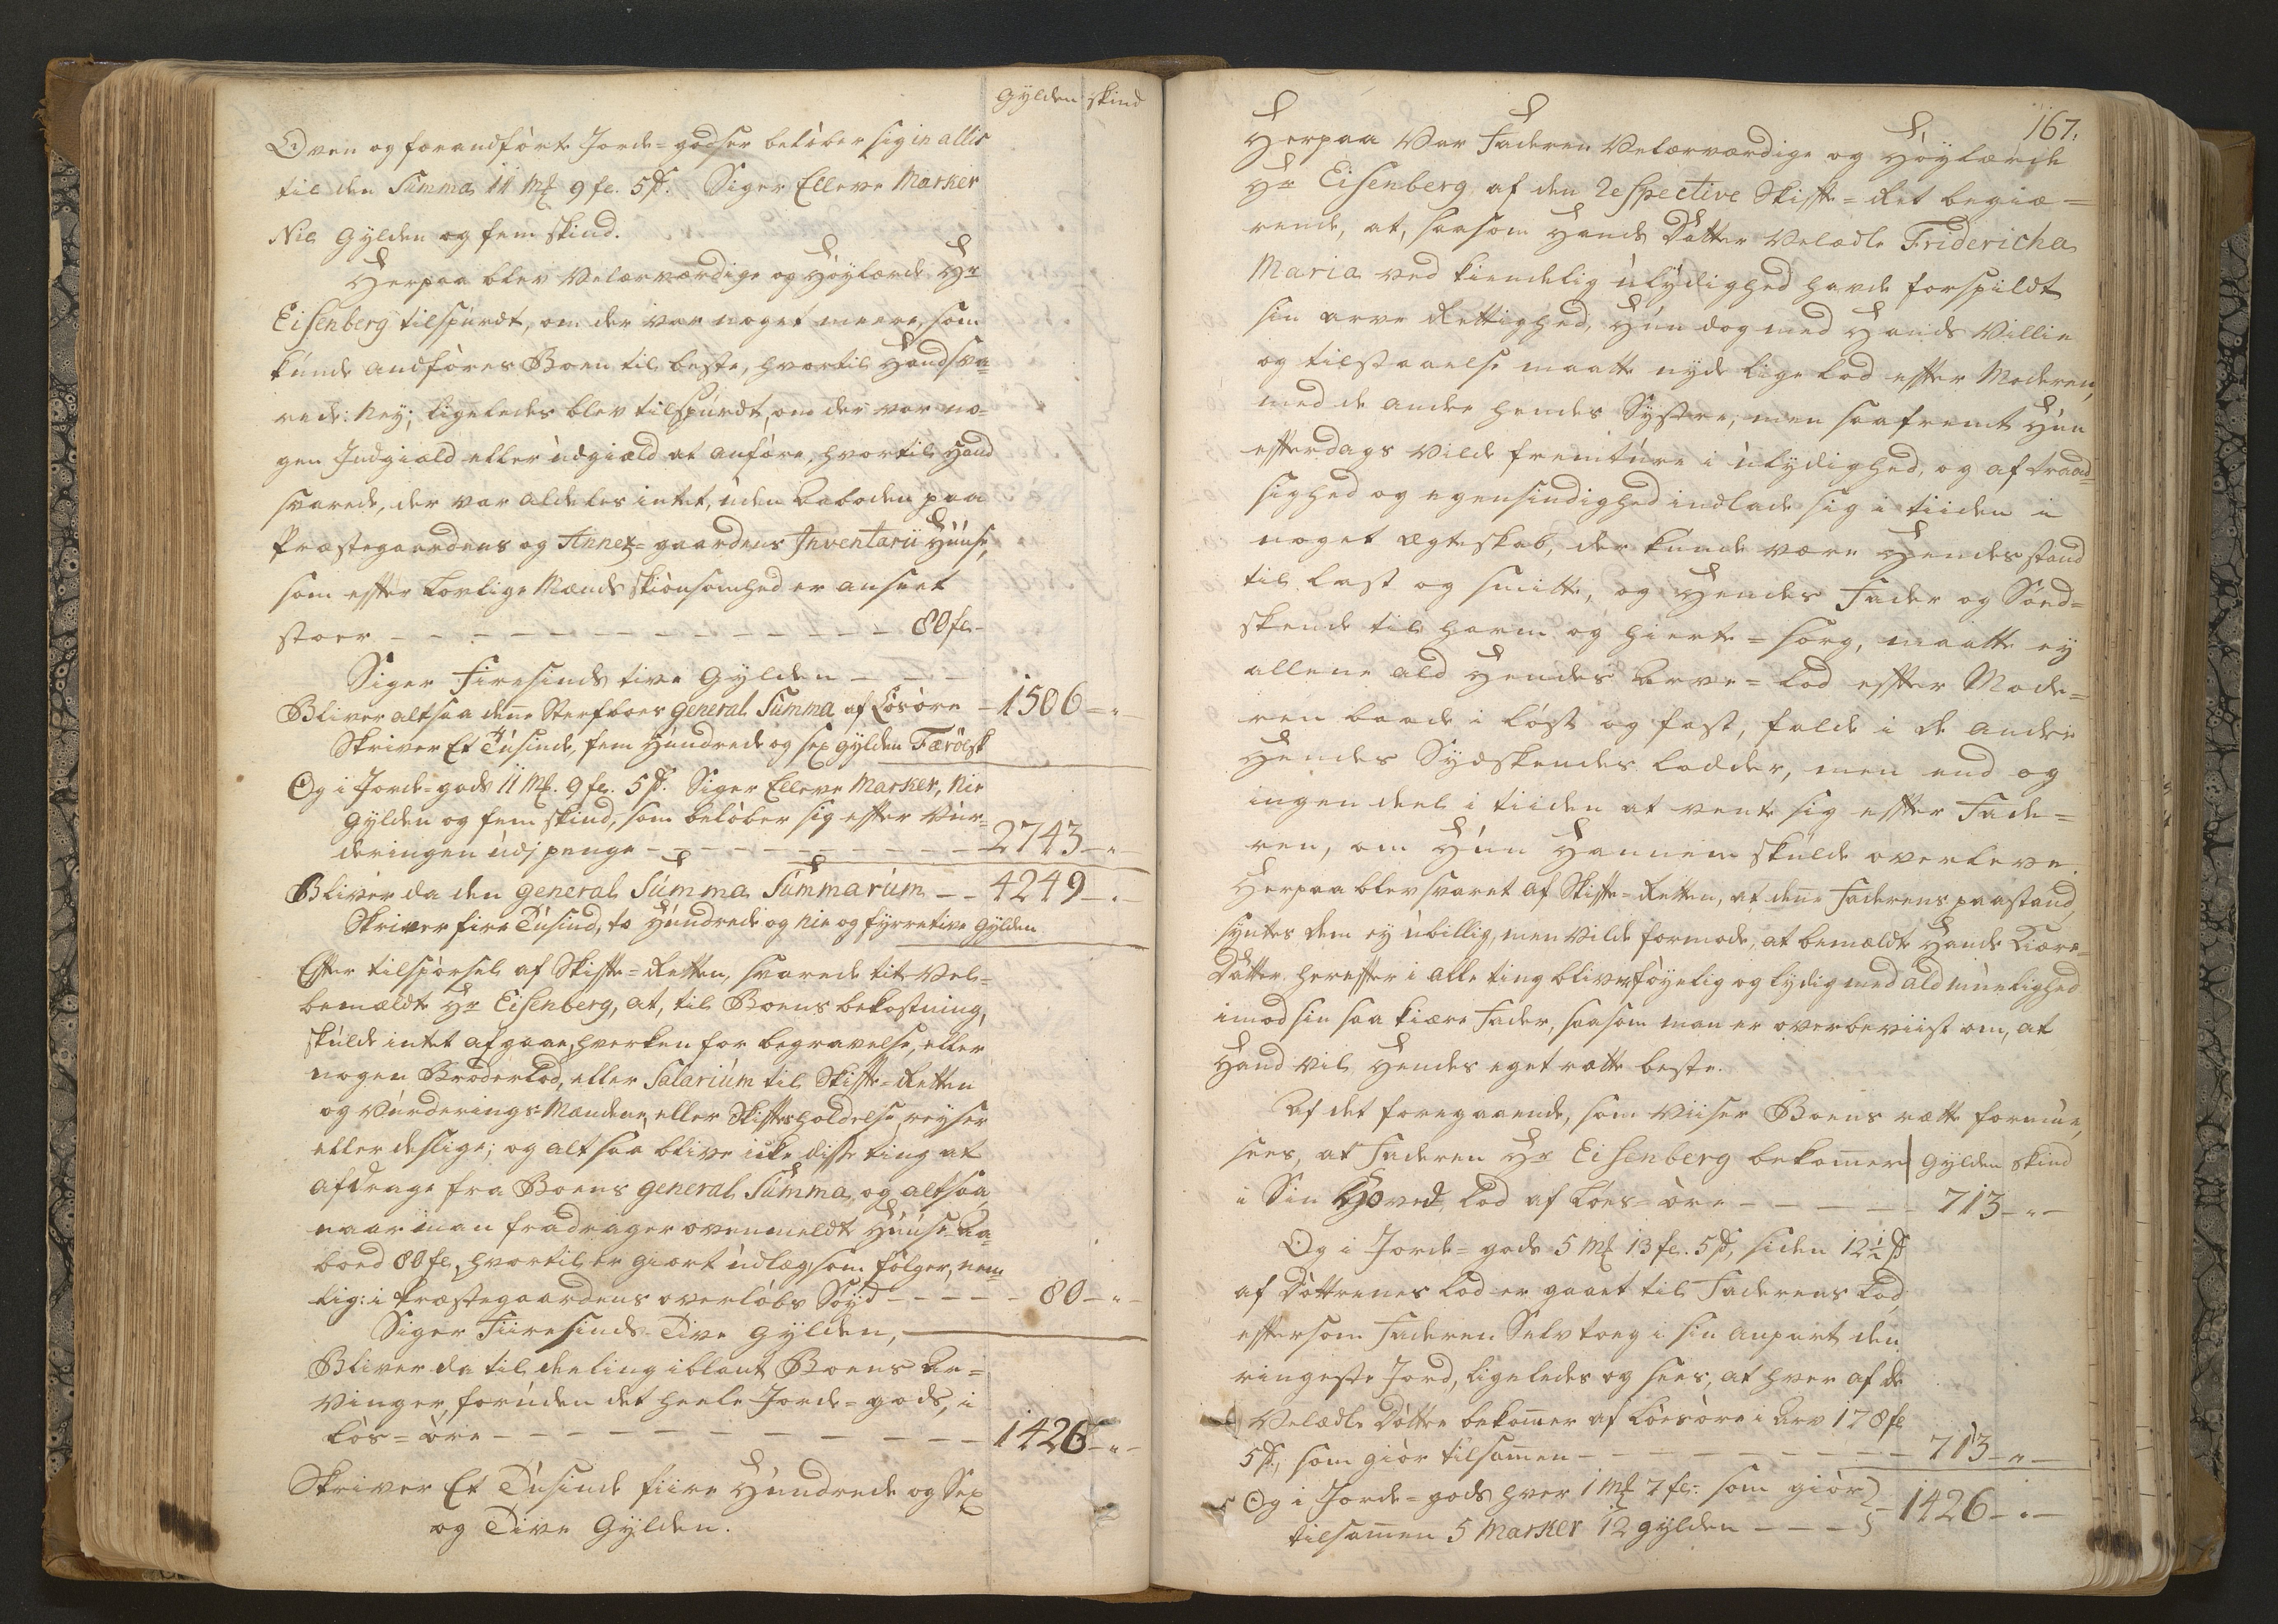 Gylden skind
Oven og foranførte Jorde=godser beløber sig in allis
til den Summa 11 Mk 9 fl. 5 ß. Siger Elleve Marker
Nie Gylden og fem skind.
Herpaa blev Velærværdige og Høylærde Hr
Eisenberg tilspurdt, om der var noget meere, som
kunde andføres Boen til beste, hvortil Hand sva=
rede: Ney; ligeledes blev tilspurdt, om der var no=
gen Indgiæld eller udgiæld at anføre, hvortil Hand
svarede, der var aldeles intet, uden Aaboden paa
Præstegaardens og Annex=gaardens Inventarii Huuse,
som efter Lovlige Mænds skiønsomhed er anseet
stoer - - - - - - - - - - 80 fl.
Siger Firesinds tive Gylden - - -
Bliver altsaa denne Sterfboes general Summa af Løsøre - 1506 - " -
Skriver Et Tusinde, fem Hundrede og sex gylden Færøesk
Og i Jorde=gods 11 Mk. 9 fl. 5 ß. Siger Elleve Marker, Nie
Gylden og fem skind, som beløber sig efter Vur=
deringen udj penge - - - - - - - - 2743 - " -
Bliver da den general Summa Summarum - - 4249 - " -
Skriver fire Tusind, to Hundrede og Nie og fyrretive Gylden
Efter tilspørsel af Skifte=Retten, svarede tit Vel=
bemældte Hr Eisenberg, at, til Boens bekostning,
skulde intet afgaae, hverken for begravelse, eller
nogen Broderlod, eller Salarium til Skifte=Retten
og Vurderings=Mændene, eller Skiftesholdelse reyser
eller deslige; og altsaa blive icke disse ting at
afdrage fra Boens general Summa, og altsaa,
naar man fradrager ovenmeldte Huuse=Aa=
boed 80 fl., hvortil er giort udlæg, som følger, nem=
lig: i Præstegaardens overløbs Søyd - - - - - 80 - " -
Siger Fiiresinds Tive Gylden,
Bliver da til deeling iblant Boens Ar=
vinger, foruden det heele Jorde=gods, i
Løs=øre - - - - - - - - - - 1426 - " -
Skriver Et Tusinde fiire Hundrede og Sex
og Tive Gylden.
167.
Herpaa Var Faderen Velærværdige og Høylærde
Hr Eisenberg af den Respective Skifte=Ret begiæ=
rende, at, saasom Hands Datter Velædle Fridericha
Maria ved kiendelig ulydighed havde forspildt
sin arve Rettighed, Hun dog med Hands Villie
og tilstaaelse maatte nyde lige Lod efter Moderen,
med de andre hendes Systre; men saafremt Hun
efterdags vilde fremture i ulydighed, og af traad=
sighed og egensindighed indlade sig i tiiden i
noget Ægteskab, der kunde være Hendes stand
til last og smitte, og Hendes Fader og Sød=
skende til harm og hierte=sorg, maatte ey
allene ald Hendes Arve=Lod efter Mode=
ren baade i løst og fast, falde i de andre
Hendes Sydskendes lodder, men end og
ingen deel i tiiden at vente sig efter Fade=
ren, om Hun Hannem skulde overleve.
Herpaa blev svaret af Skifte=Retten, at denne Faderens paastand,
syntes dem ey ubillig, men vilde formode, at bemældte Hands Kiære
Datter, herefter i alle ting bliver føyelig og lydig med ald muelighed
imod sin saa kiære Fader, saasom man er overbeviist om, at
Hand vil Hendes eget rætte beste.
Af det foregaaende, som Viiser Boens rætte formue,
sees, at Faderen Hr Eisenberg bekommer Gylden skind
i Sin Hoved Lod af Løes=øre - - - - - 713 - " -
Og i Jorde=gods 5 Mk 13 fl. 5 ß, siden 12½ ß
af Døttrenes Lod er gaaet til Faderens Lod,
eftersom Faderen Selv toeg i sin anpart den
ringeste Jord, ligeledes og sees, at hver af de
Velædle Døttre bekommer af Løesøre i Arv 178 fl
5 ß, som giør tilsammen - - - - - - 713 - " -
Og i Jorde=gods hver 1 Mk 7 fl. som giør
tilsammen 5 Marker 12 gylden - - - 1426 - " -